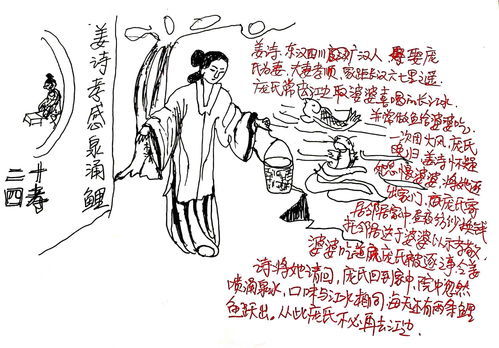 二十四孝
姜诗孝感泉涌鲤
姜诗,东汉四川广汉人,娶庞
氏为妻。夫妻孝顺,家距长江六七里遥
庞氏常江边取婆婆喜喝的长江水。
并常做鱼给婆婆吃。
一次因大风,庞氏
晚归,姜诗怀疑
她怠慢婆婆,将她逐
出家门。庞氏寄
居邻居家中,昼夜纺纱换钱
托邻居送于婆婆以示孝敬
婆婆庞氏被逐,令姜
诗将她请回,庞氏回到家中,院中忽然
喷涌泉水,口味与江水相同,每天还有两条鲤
鱼跃出。从此庞氏不必再去江边。